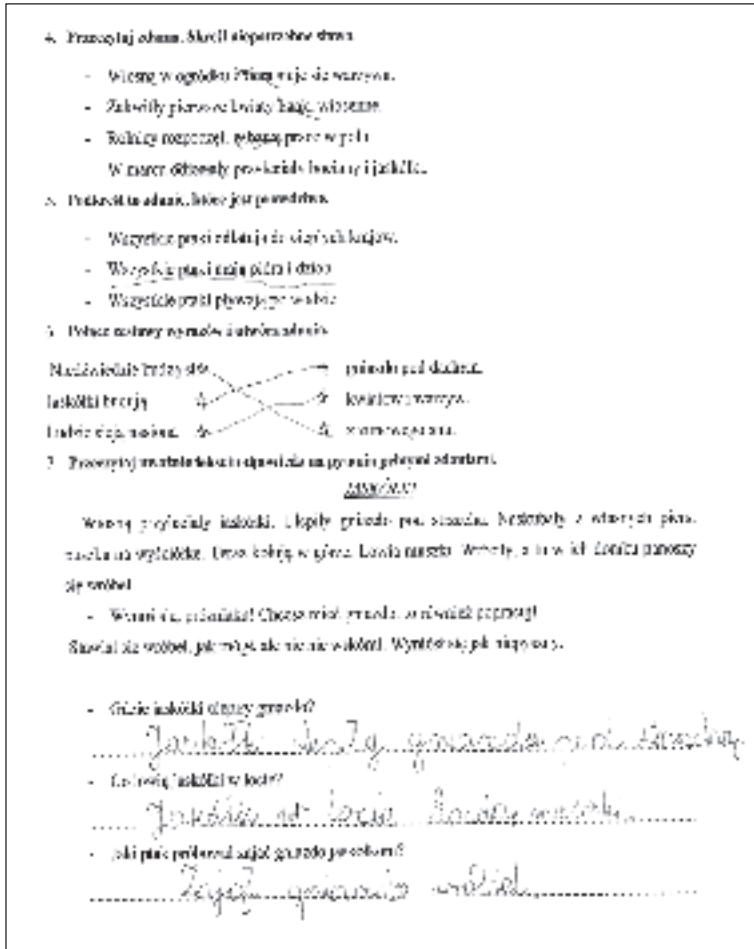 4. Przeczytaj zdania. Skreśl niepotrzebne słowa.
- Wiosną w ogródku się warzywa.
- Zakwitły pierwsze kwiaty wiosenne.
- Rolnicy rozpoczęli prace w polu
W marcu przyleciały bociany i jaskółki.
5. Podkreśl to zdanie, które jest prawdziwe.
- Wszystkie ptaki odlatują do ciepłych krajów.
- Wszystkie ptaki mają pióra i dziób
- Wszystkie ptaki pływają po wodzie
Połącz zestawy wyrazów i utwórz zdania.
Niedźwiedzie budzą się gniazdo pod dachem.
Jaskółki budują kwiatów i warzyw.
Ludzie sieją nasiona z zimowego snu.
7. Przeczytaj uważnie tekst i odpowiedz na pytania pełnymi zdaniami.
JASKÓŁKI
Wiosną przyleciały jaskółki. Ulepiły gniazdo pod strzechą. z własnych piór,
na wyściółkę. Teraz kołują w górze. Łowią muszki. a tu w ich domku panoszy
się wróbel
- Wynoś się, próżniaku! Chcesz mieć gniazdo, to również popracuj!
Stawiał się wróbel, jak mógł, ale nic nie wskórał. Wyniósł się jak niepyszny.
- Gdzie jaskółki ulepiły gniazdo?
Jaskółki gniazdo pod strzechą
- Co łowią jaskółki w locie?
Jaskółki w locie łowią muszki.
- Jaki ptak próbował zająć gniazdo jaskółkom?
Zajął gniazdo wróbel.